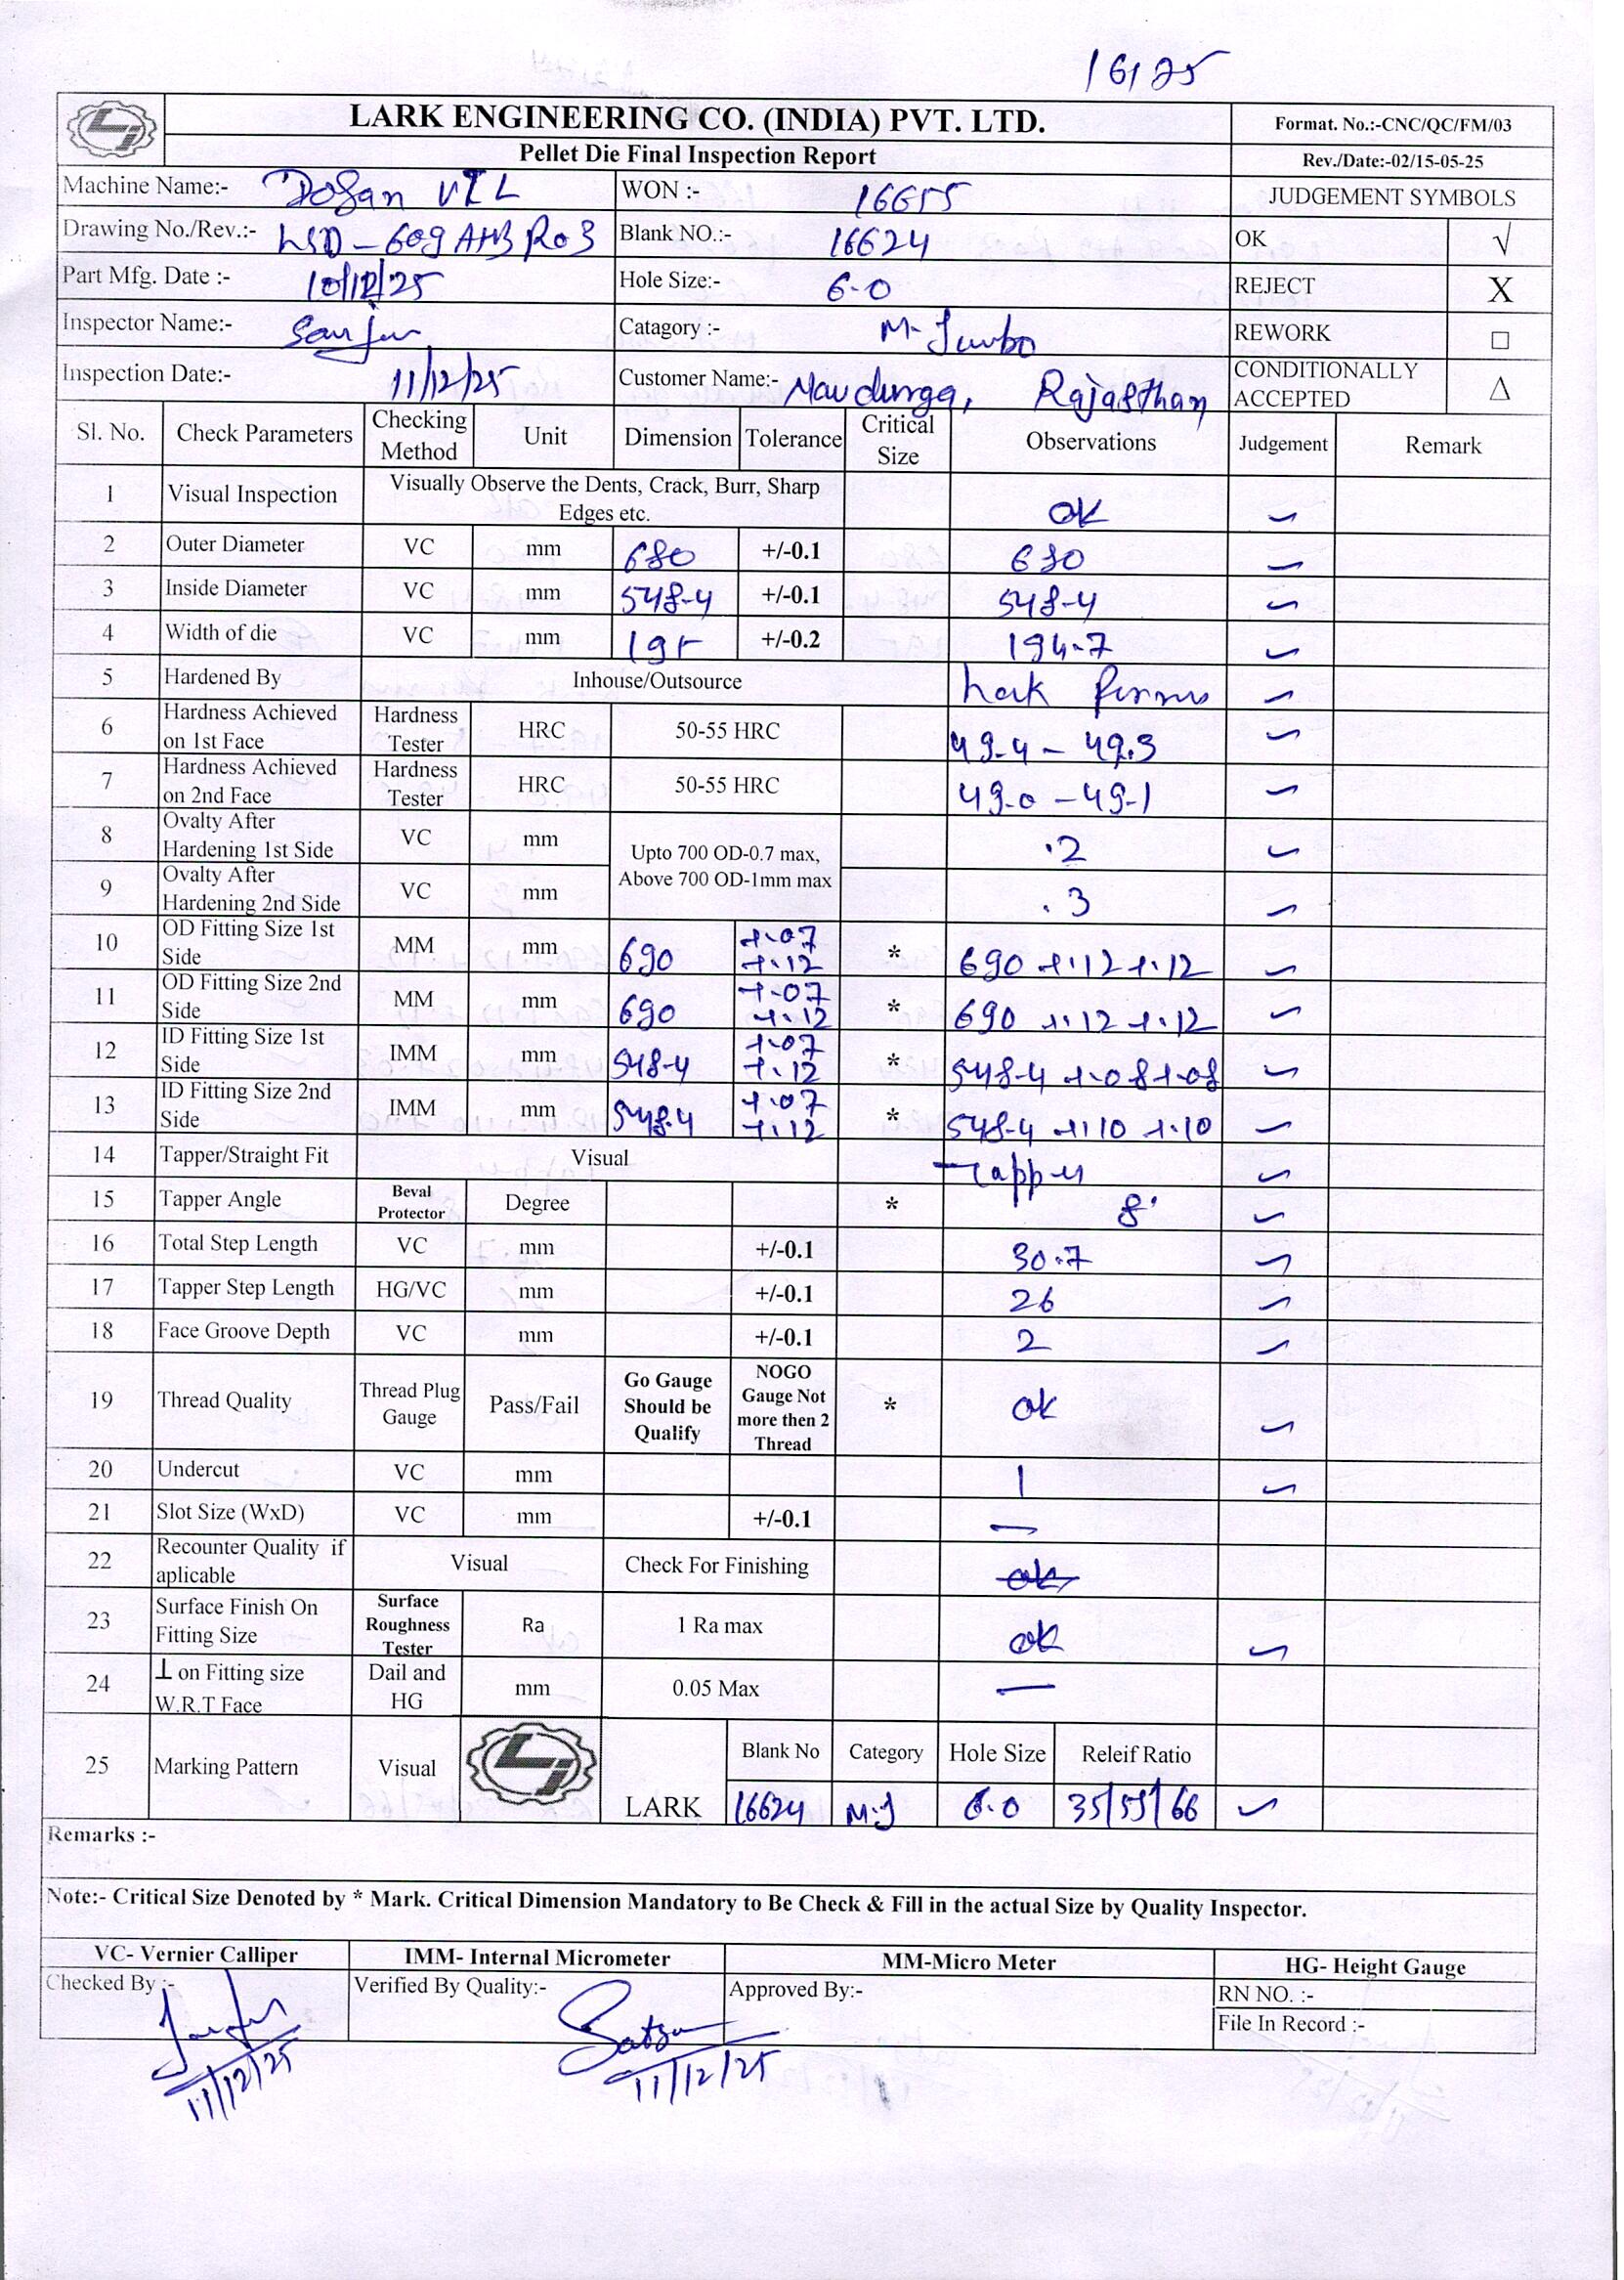 16125
LARK ENGINEERING CO. (INDIA) PVT. LTD.
Format. No.:-CNC/QC/FM/03
Pellet Die Final Inspection Report
Rev./Date:-02/15-05-25
Machine Name:- Dosan VTL WON :- 16655 JUDGEMENT SYMBOLS
Drawing No./Rev.:- LSD-609 AHB R03 Blank NO.:- 16624 OK √
Part Mfg. Date :- 10/12/25 Hole Size:- 6.0 REJECT X
Inspector Name:- Sanju Catagory :- M-Jumbo REWORK □
Inspection Date:- 11/12/25 Customer Name:- Maa durga, Rajasthan CONDITIONALLY ACCEPTED Δ
Sl. No. Check Parameters Checking Method Unit Dimension Tolerance Critical Size Observations Judgement Remark
1 Visual Inspection Visually Observe the Dents, Crack, Burr, Sharp Edges etc. OK ✓
2 Outer Diameter VC mm 680 +/-0.1 680 ✓
3 Inside Diameter VC mm 548.4 +/-0.1 548.4 ✓
4 Width of die VC mm 195 +/-0.2 194.7 ✓
5 Hardened By Inhouse/Outsource Lark ✓
6 Hardness Achieved on 1st Face Hardness Tester HRC 50-55 HRC 49.4 - 49.3 ✓
7 Hardness Achieved on 2nd Face Hardness Tester HRC 50-55 HRC 49.0 - 49.1 ✓
8 Ovalty After Hardening 1st Side VC mm Upto 700 OD-0.7 max, Above 700 OD-1mm max .2 ✓
9 Ovalty After Hardening 2nd Side VC mm .3 ✓
10 OD Fitting Size 1st Side MM mm 690 +.07 +.12 * 690 +.12 +.12 ✓
11 OD Fitting Size 2nd Side MM mm 690 +.07 +.12 * 690 +.12 +.12 ✓
12 ID Fitting Size 1st Side IMM mm 548.4 +.07 +.12 * 548.4 +.08 +.08 ✓
13 ID Fitting Size 2nd Side IMM mm 548.4 +.07 +.12 * 548.4 +.10 +.10 ✓
14 Tapper/Straight Fit Visual Tapper ✓
15 Tapper Angle Beval Protector Degree * 8° ✓
16 Total Step Length VC mm +/-0.1 30.7 ✓
17 Tapper Step Length HG/VC mm +/-0.1 26 ✓
18 Face Groove Depth VC mm +/-0.1 2 ✓
19 Thread Quality Thread Plug Gauge Pass/Fail Go Gauge Should be Qualify NOGO Gauge Not more then 2 Thread * ok ✓
20 Undercut VC mm 1 ✓
21 Slot Size (WxD) VC mm +/-0.1 —
22 Recounter Quality if aplicable Visual Check For Finishing ok
23 Surface Finish On Fitting Size Surface Roughness Tester Ra 1 Ra max ok ✓
24 ⊥ on Fitting size W.R.T Face Dail and HG mm 0.05 Max —
25 Marking Pattern Visual LARK Blank No Category Hole Size Releif Ratio
16624 M.J 6.0 35/55/66 ✓
Remarks :-
Note:- Critical Size Denoted by * Mark. Critical Dimension Mandatory to Be Check & Fill in the actual Size by Quality Inspector.
VC- Vernier Calliper IMM- Internal Micrometer MM-Micro Meter HG- Height Gauge
Checked By :- Verified By Quality:- Approved By:- RN NO. :-
File In Record :-
Sanju Satya
11/12/25 11/12/25